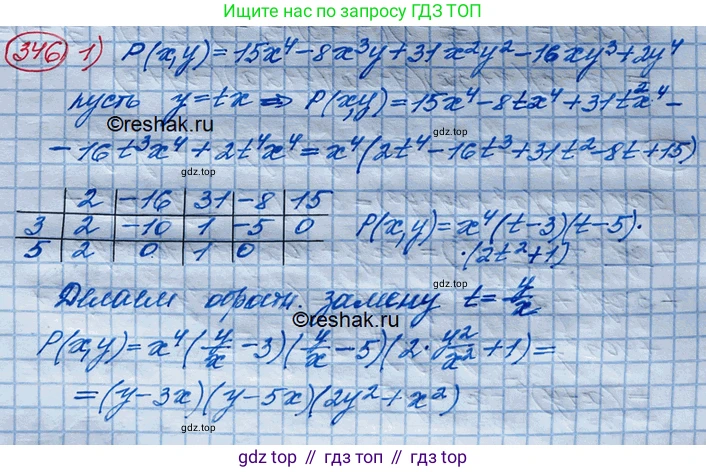 Ищите нас по запросу ГДЗ ТОП
346 1) P(x,y)=15x⁴-8x³y+31x²y²-16xy³+2y⁴
пусть y=tx ⇒ P(x,y)=15x⁴-8tx⁴+31t²x⁴-
©reshak.ru
gdz.top
-16t³x⁴+2t⁴x⁴=x⁴(2t⁴-16t³+31t²-8t+15)
2 -16 31 -8 15
3 2 -10 1 -5 0
5 2 0 1 0
P(x,y)=x⁴(t-3)(t-5)·
·(2t²+1)
gdz.top
Делаем обратн. замену t=y/x
©reshak.ru
P(x,y)=x⁴(y/x-3)(y/x-5)(2·y²/x²+1)=
gdz.top
=(y-3x)(y-5x)(2y²+x²)
gdz.top // гдз.топ // gdz.top